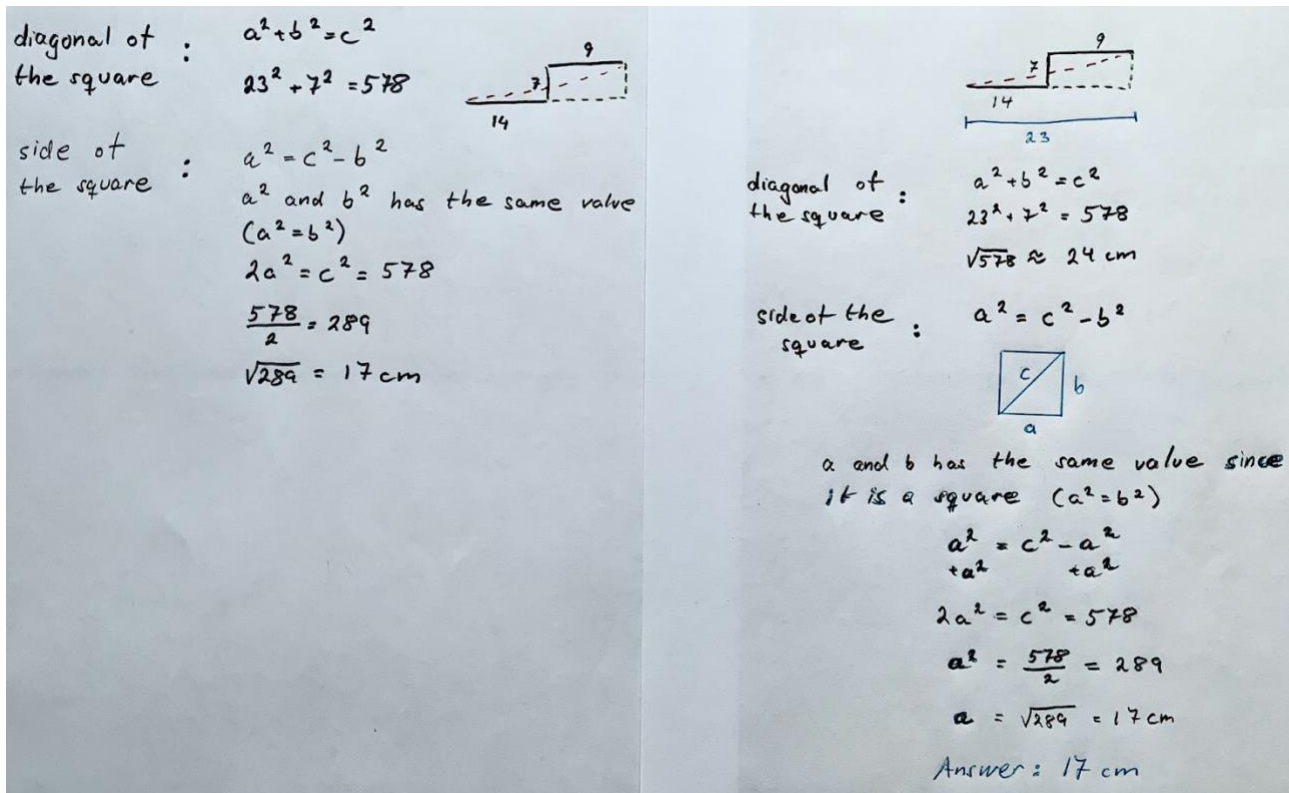 diagonal of
the square :
a² + b² = c²
23² + 7² = 578
9
7
14
side of
the square :
a² = c² - b²
a² and b² has the same value
(a² = b²)
2a² = c² = 578
578/2 = 289
√289 = 17 cm
9
7
14
23
diagonal of
the square :
a² + b² = c²
23² + 7² = 578
√578 ≈ 24 cm
side of the
square :
a² = c² - b²
c
b
a
a and b has the same value since
it is a square (a² = b²)
a² = c² - a²
+a² +a²
2a² = c² = 578
a² = 578/2 = 289
a = √289 = 17 cm
Answer: 17 cm